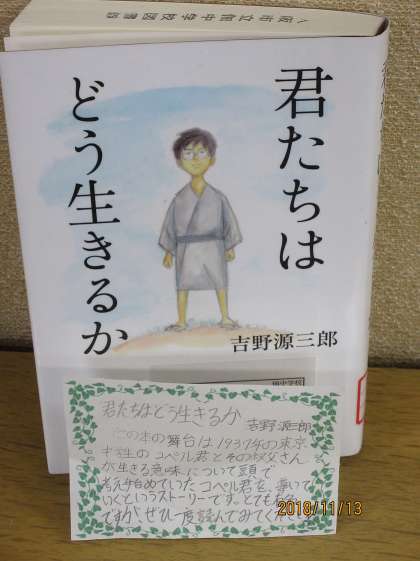 君たちは
どう生きるか
吉野源三郎
君たちはどう生きるか
吉野源三郎
この本の舞台は1937年の東京
中学生のコペル君とその叔父さん
が生きる意味について頭で
考え始めていたコペル君を、導いて
いくというストーリーです。とても
ですが、ぜひ一度読んでみて
2018/11/13